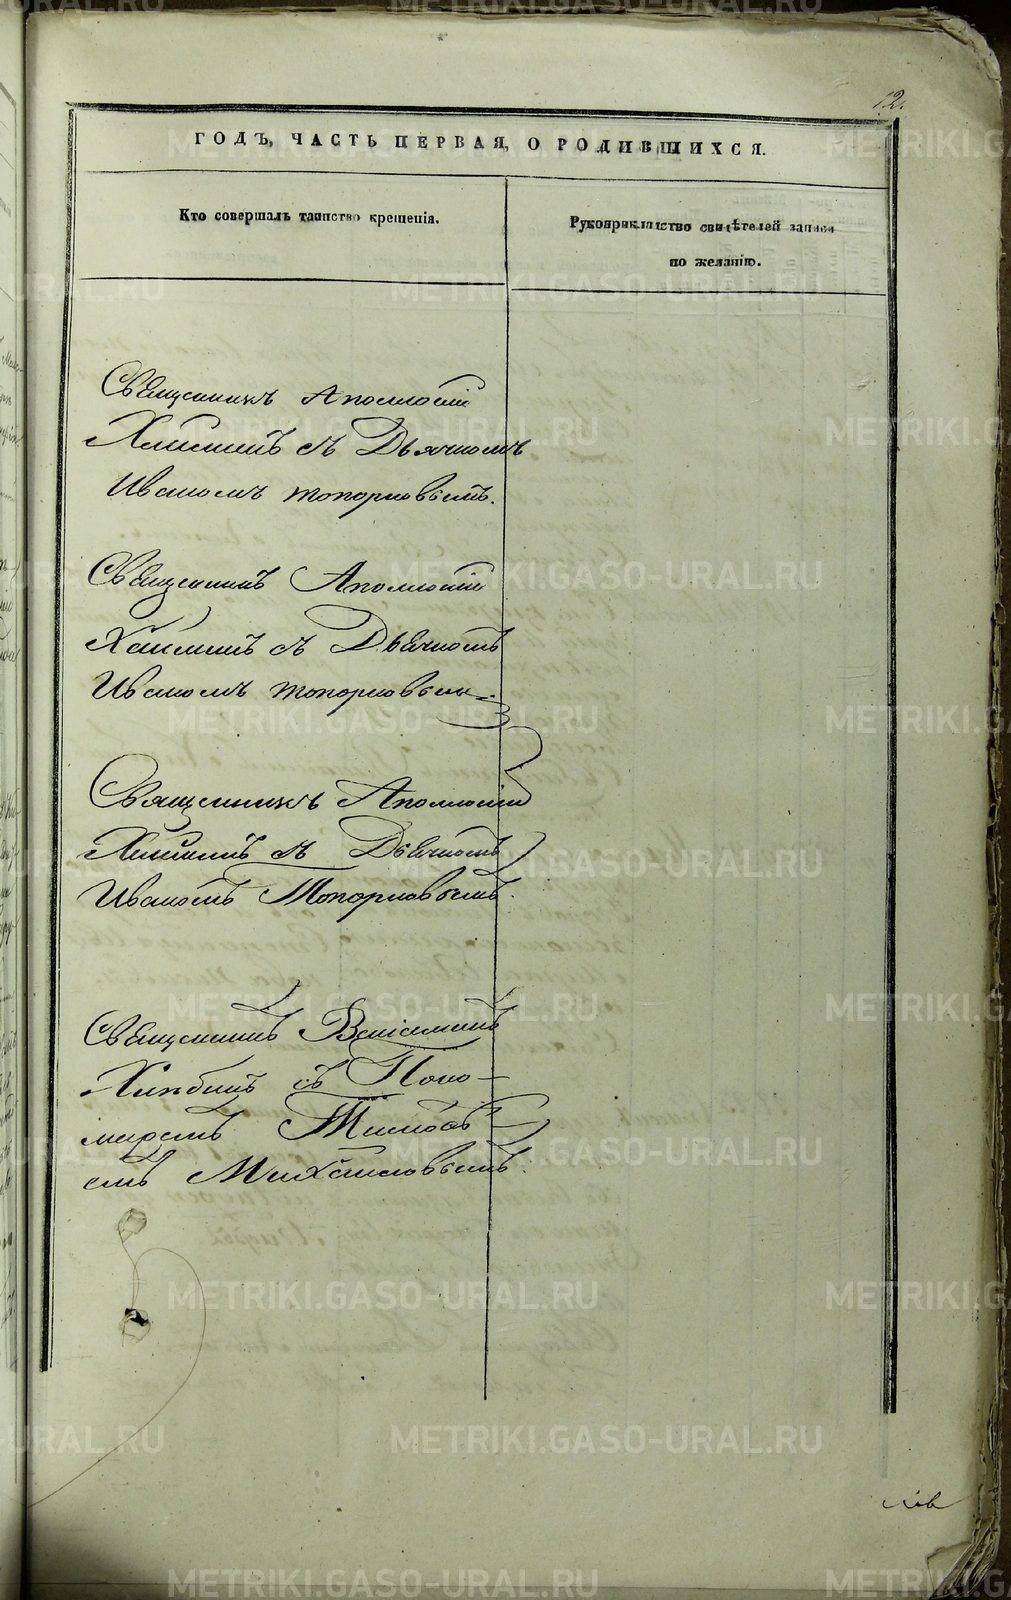 12.
ГОДЪ, ЧАСТЬ ПЕРВАЯ, О РОДИВШИХСЯ.
Кто совершалъ таинство крещенія.
Рукоприкладство свидѣтелей записи
по желанію.
Священникъ Аполлосій
съ Дьячкомъ
Иваномъ Топорковымъ.
Священникъ Аполлосій
съ Дьячкомъ
Иваномъ Топорковым
Священникъ Аполлосій
съ Дьячкомъ
Иваномъ Топорковымъ.
Священникъ Веніаминъ
съ Поно-
маремъ Тимоѳе
емъ Михайловымъ.
METRIKI.GASO-URAL.RU